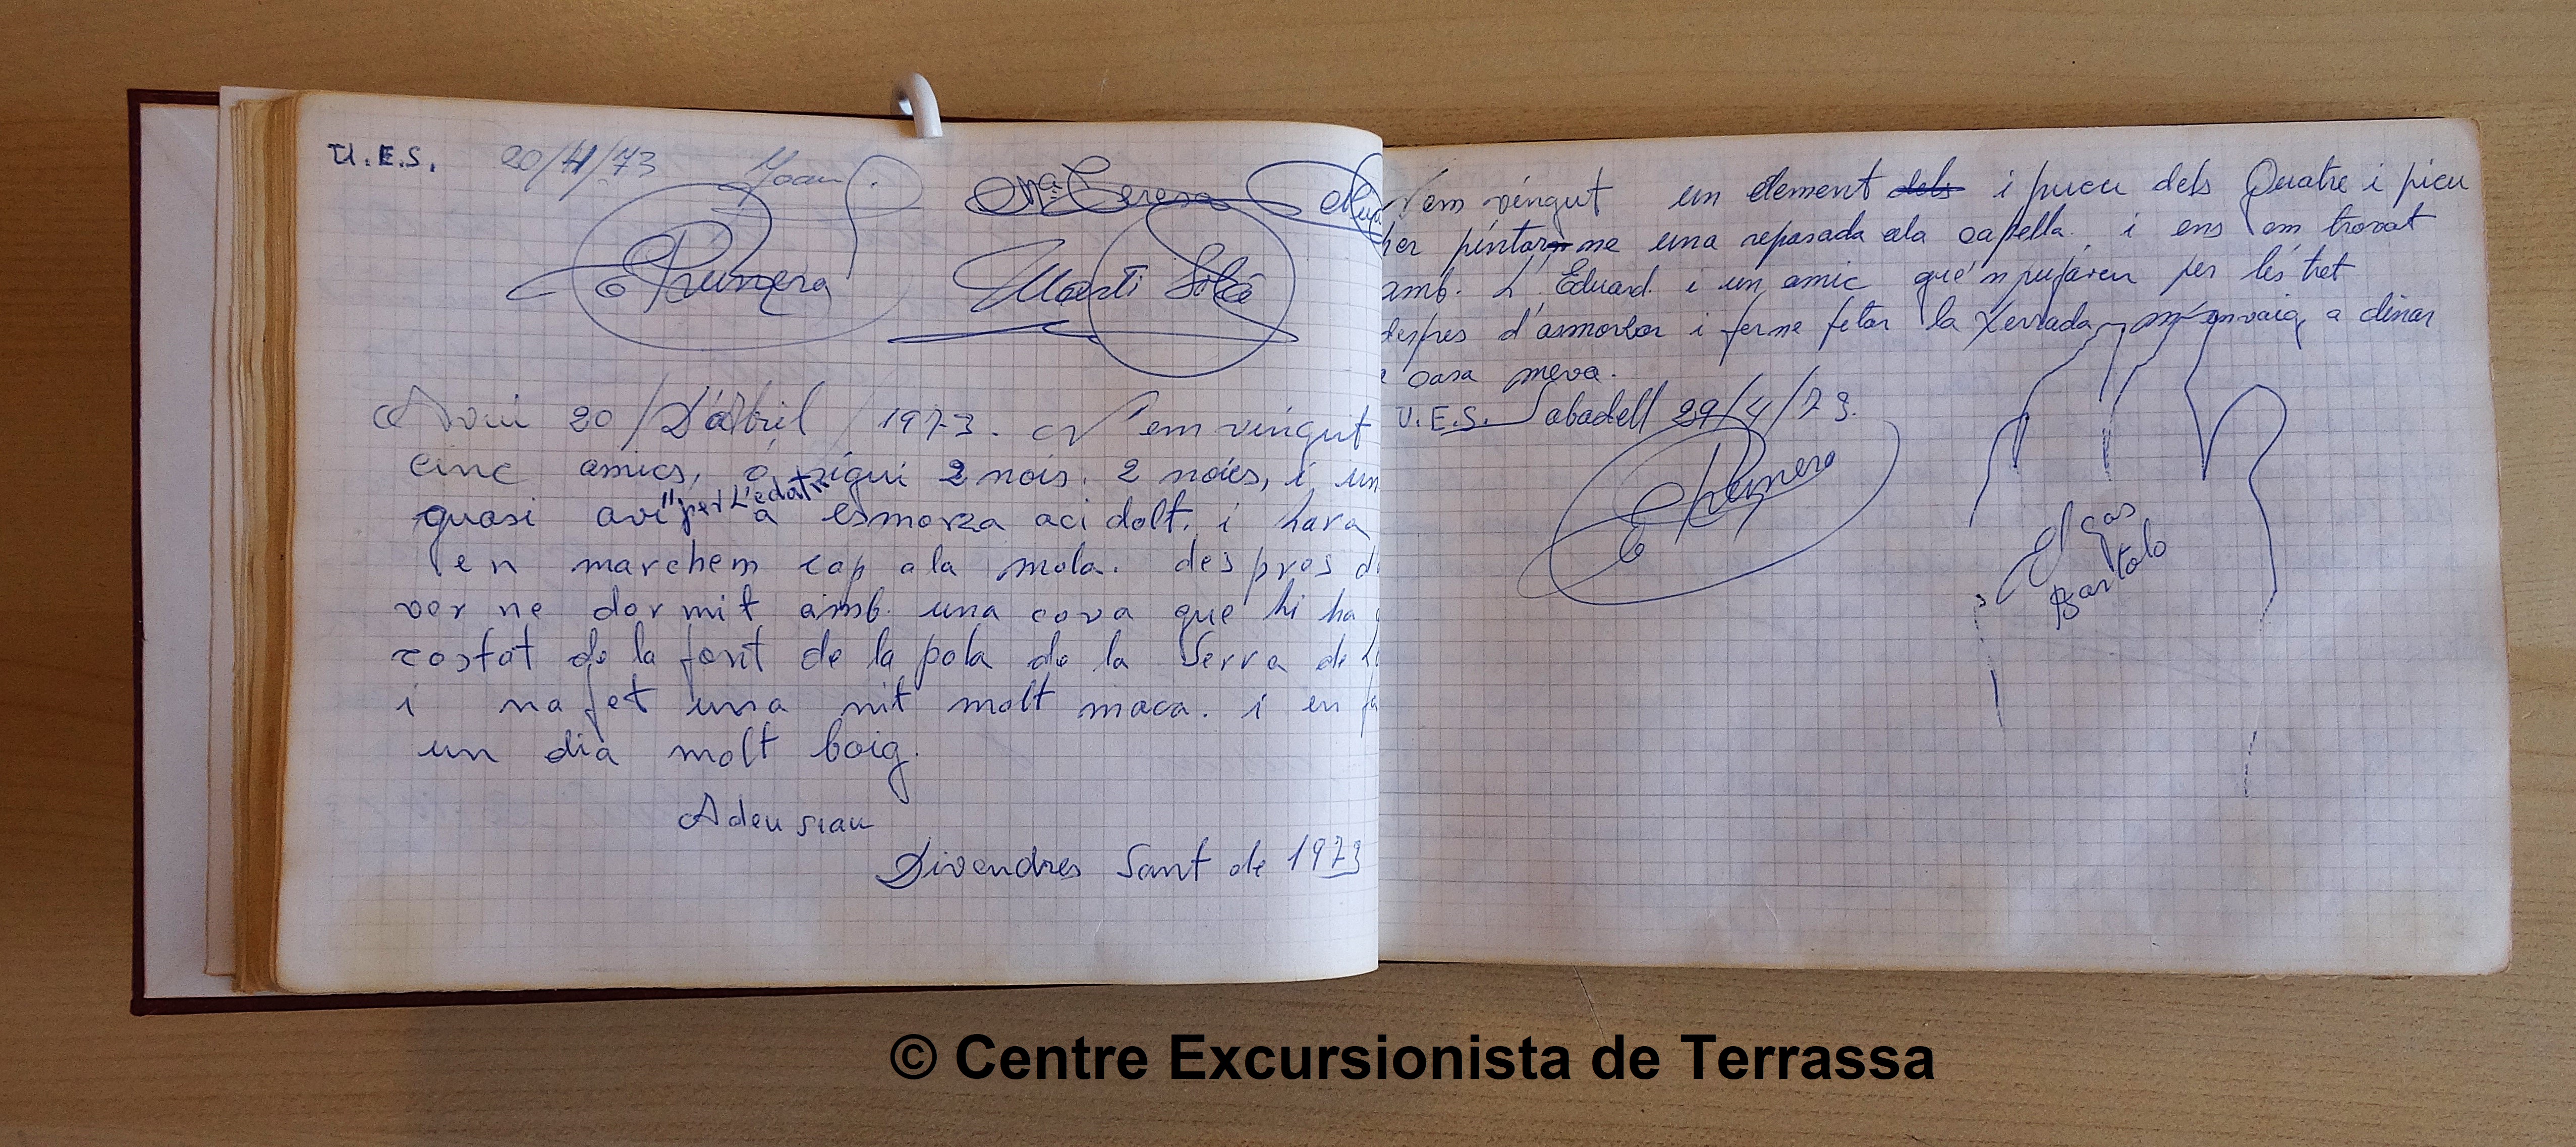 U.E.S. 20/4/73 Joan P.
Mª Teresa
E Prunera Marti Solé
Avui 20/D'abril/1973. N'em vingut
cinc amics, o sigui 2 nois. 2 noies, i un
quasi avi "per L'edat" a esmorza aci dalt. i hara
en marchem cap ala mola. despres d
ver ne dormit amb. una cova que hi ha
costat de la font de la pola de la Serra de
i na fet una nit molt maca. i en fa
un dia molt boig.
Adeu siau
Divendres Sant de 1973
N'em vingut un element dels i pucu dels Quatre i picu
per pintar ne una repasada ala capella. i ens em trovat
amb. L'Eduard. i un amic que'n pujaren per
despres d'asmorzar i ferne petar la Xerrada m'envaig a dinar
a casa meva.
U.E.S. Sabadell 29/4/73.
E Prunera
El gos
Bartolo
© Centre Excursionista de Terrassa